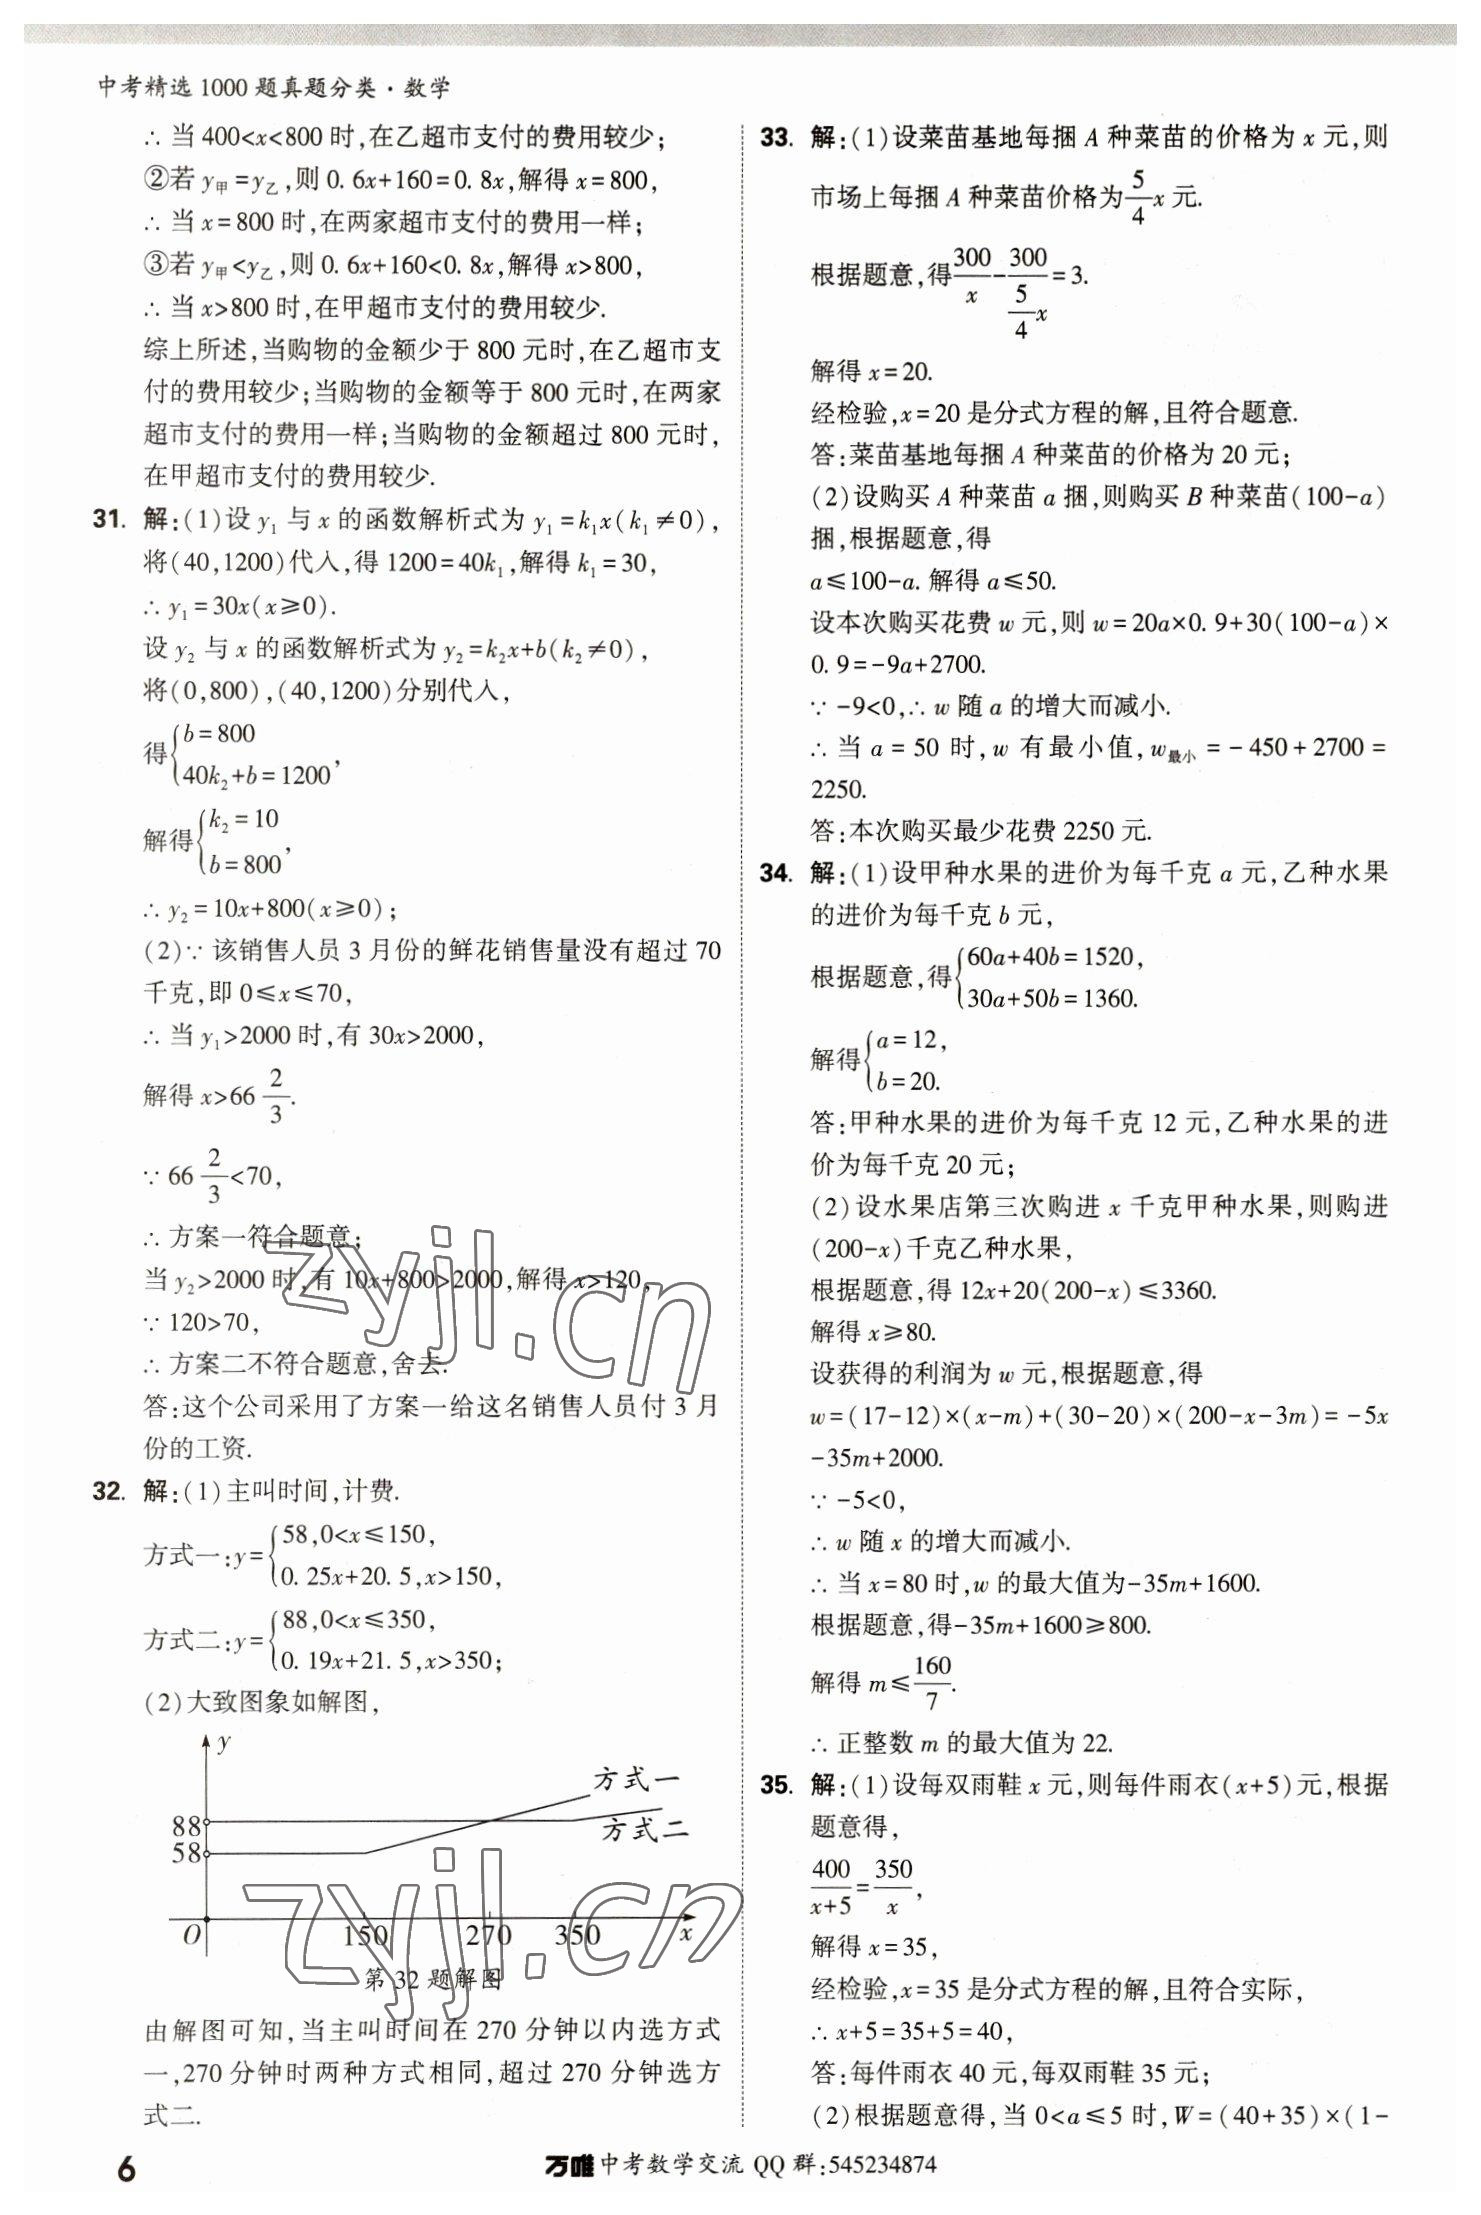 中考精选1000题真题分类·数学
∴当400<x<800时,在乙超市支付的费用较少;
②若y甲=y乙,则0.6x+160=0.8x,解得x=800,
∴当x=800时,在两家超市支付的费用一样;
③若y甲<y乙,则0.6x+160<0.8x,解得x>800,
∴当x>800时,在甲超市支付的费用较少.
综上所述,当购物的金额少于800元时,在乙超市支
付的费用较少;当购物的金额等于800元时,在两家
超市支付的费用一样;当购物的金额超过800元时,
在甲超市支付的费用较少.
31. 解:(1)设y₁与x的函数解析式为y₁=k₁x(k₁≠0),
将(40,1200)代入,得1200=40k₁,解得k₁=30,
∴y₁=30x(x≥0).
设y₂与x的函数解析式为y₂=k₂x+b(k₂≠0),
将(0,800),(40,1200)分别代入,
得{b=800
40k₂+b=1200,
解得{k₂=10
b=800,
∴y₂=10x+800(x≥0);
(2)∵该销售人员3月份的鲜花销售量没有超过70
千克,即0≤x≤70,
∴当y₁>2000时,有30x>2000,
解得x>66 2/3.
∵66 2/3<70,
∴方案一符合题意;
当y₂>2000时,有10x+800>2000,解得x>120,
∵120>70,
∴方案二不符合题意,舍去.
答:这个公司采用了方案一给这名销售人员付3月
份的工资.
32. 解:(1)主叫时间,计费.
方式一:y={58,0<x≤150,
0.25x+20.5,x>150,
方式二:y={88,0<x≤350,
0.19x+21.5,x>350;
(2)大致图象如解图,
y
方式一
88
方式二
58
O 150 270 350 x
第32题解图
由解图可知,当主叫时间在270分钟以内选方式
一,270分钟时两种方式相同,超过270分钟选方
式二.
33. 解:(1)设菜苗基地每捆A种菜苗的价格为x元,则
市场上每捆A种菜苗价格为5/4x元.
根据题意,得300/x-300/(5/4x)=3.
解得x=20.
经检验,x=20是分式方程的解,且符合题意.
答:菜苗基地每捆A种菜苗的价格为20元;
(2)设购买A种菜苗a捆,则购买B种菜苗(100-a)
捆,根据题意,得
a≤100-a.解得a≤50.
设本次购买花费w元,则w=20a×0.9+30(100-a)×
0.9=-9a+2700.
∵-9<0,∴w随a的增大而减小.
∴当a=50时,w有最小值,w最小=-450+2700=
2250.
答:本次购买最少花费2250元.
34. 解:(1)设甲种水果的进价为每千克a元,乙种水果
的进价为每千克b元,
根据题意,得{60a+40b=1520,
30a+50b=1360.
解得{a=12,
b=20.
答:甲种水果的进价为每千克12元,乙种水果的进
价为每千克20元;
(2)设水果店第三次购进x千克甲种水果,则购进
(200-x)千克乙种水果,
根据题意,得12x+20(200-x)≤3360.
解得x≥80.
设获得的利润为w元,根据题意,得
w=(17-12)×(x-m)+(30-20)×(200-x-3m)=-5x
-35m+2000.
∵-5<0,
∴w随x的增大而减小.
∴当x=80时,w的最大值为-35m+1600.
根据题意,得-35m+1600≥800.
解得m≤160/7.
∴正整数m的最大值为22.
35. 解:(1)设每双雨鞋x元,则每件雨衣(x+5)元,根据
题意得,
400/(x+5)=350/x,
解得x=35,
经检验,x=35是分式方程的解,且符合实际,
∴x+5=35+5=40,
答:每件雨衣40元,每双雨鞋35元;
(2)根据题意得,当0<a≤5时,W=(40+35)×(1-
6
万唯中考数学交流QQ群:545234874
zyjl.cn
zyjl.cn